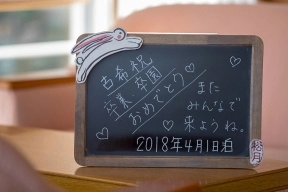 古希祝
卒業 卒園
おめでとう
またに
みんなで
来ようね。
2018年4月1日